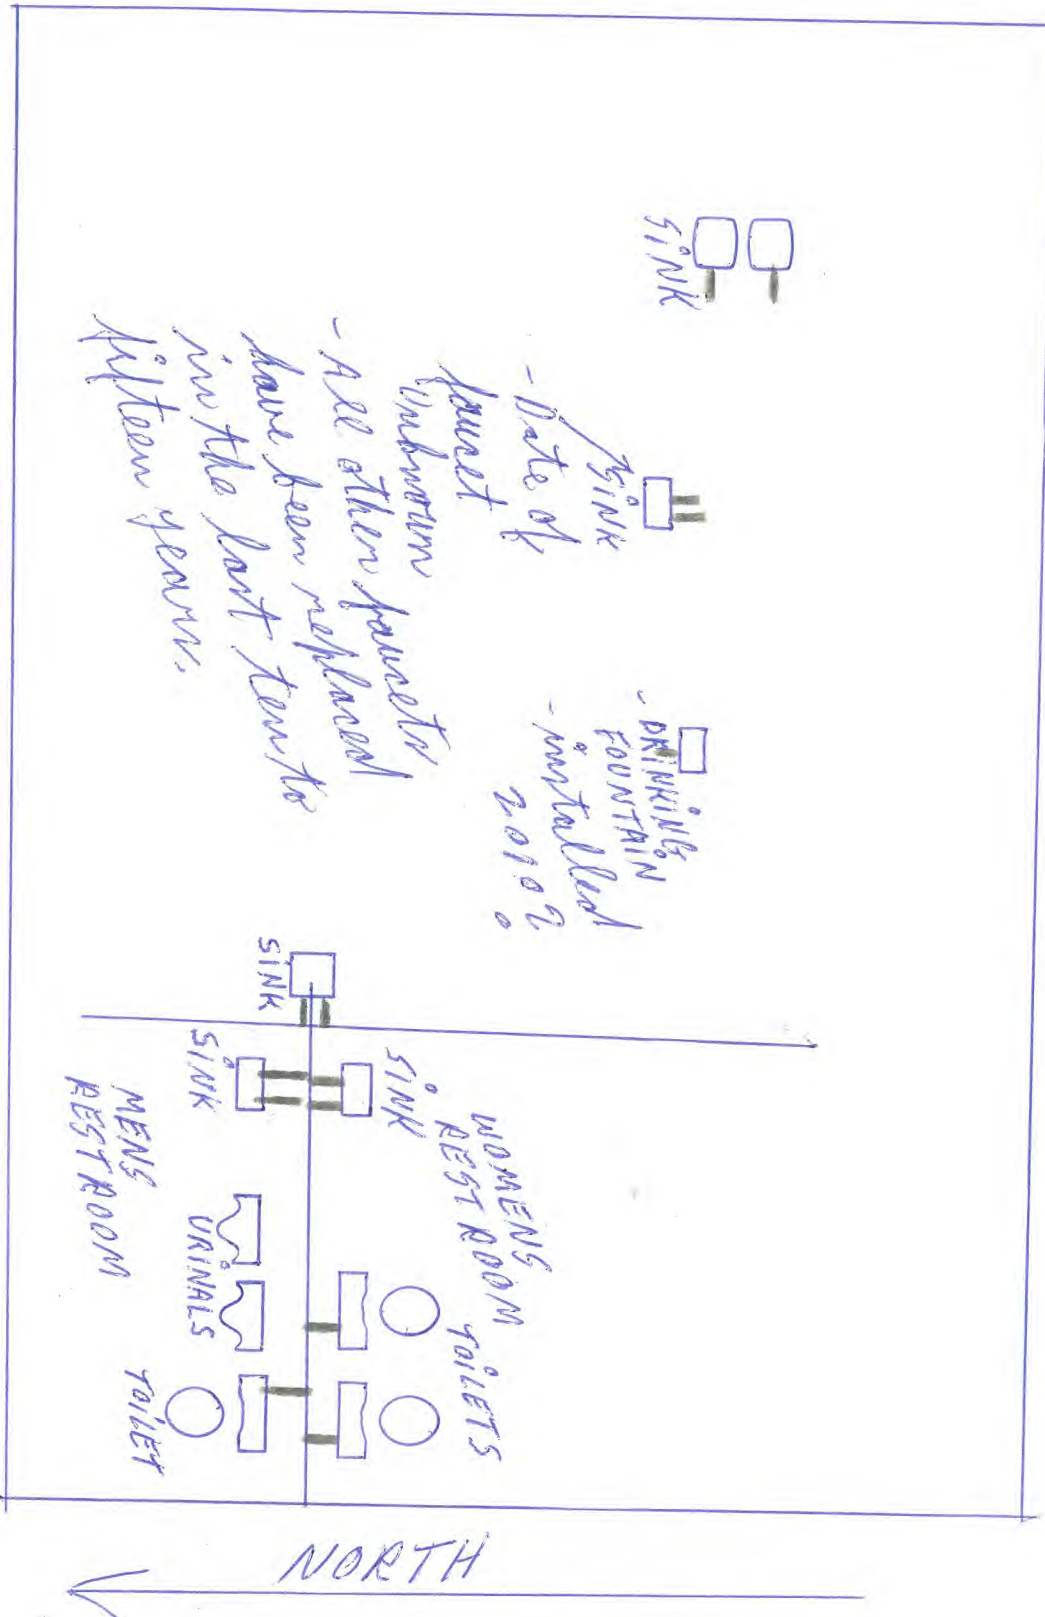 SINK
SINK
- Date of
faucet
Unknown
- All other faucets
have been replaced
in the last ten to
fifteen years.
- DRINKING
FOUNTAIN
- installed
2010?
SINK
SINK
SINK
WOMENS
RESTROOM
MENS
RESTROOM
URINALS
TOILETS
TOILET
NORTH